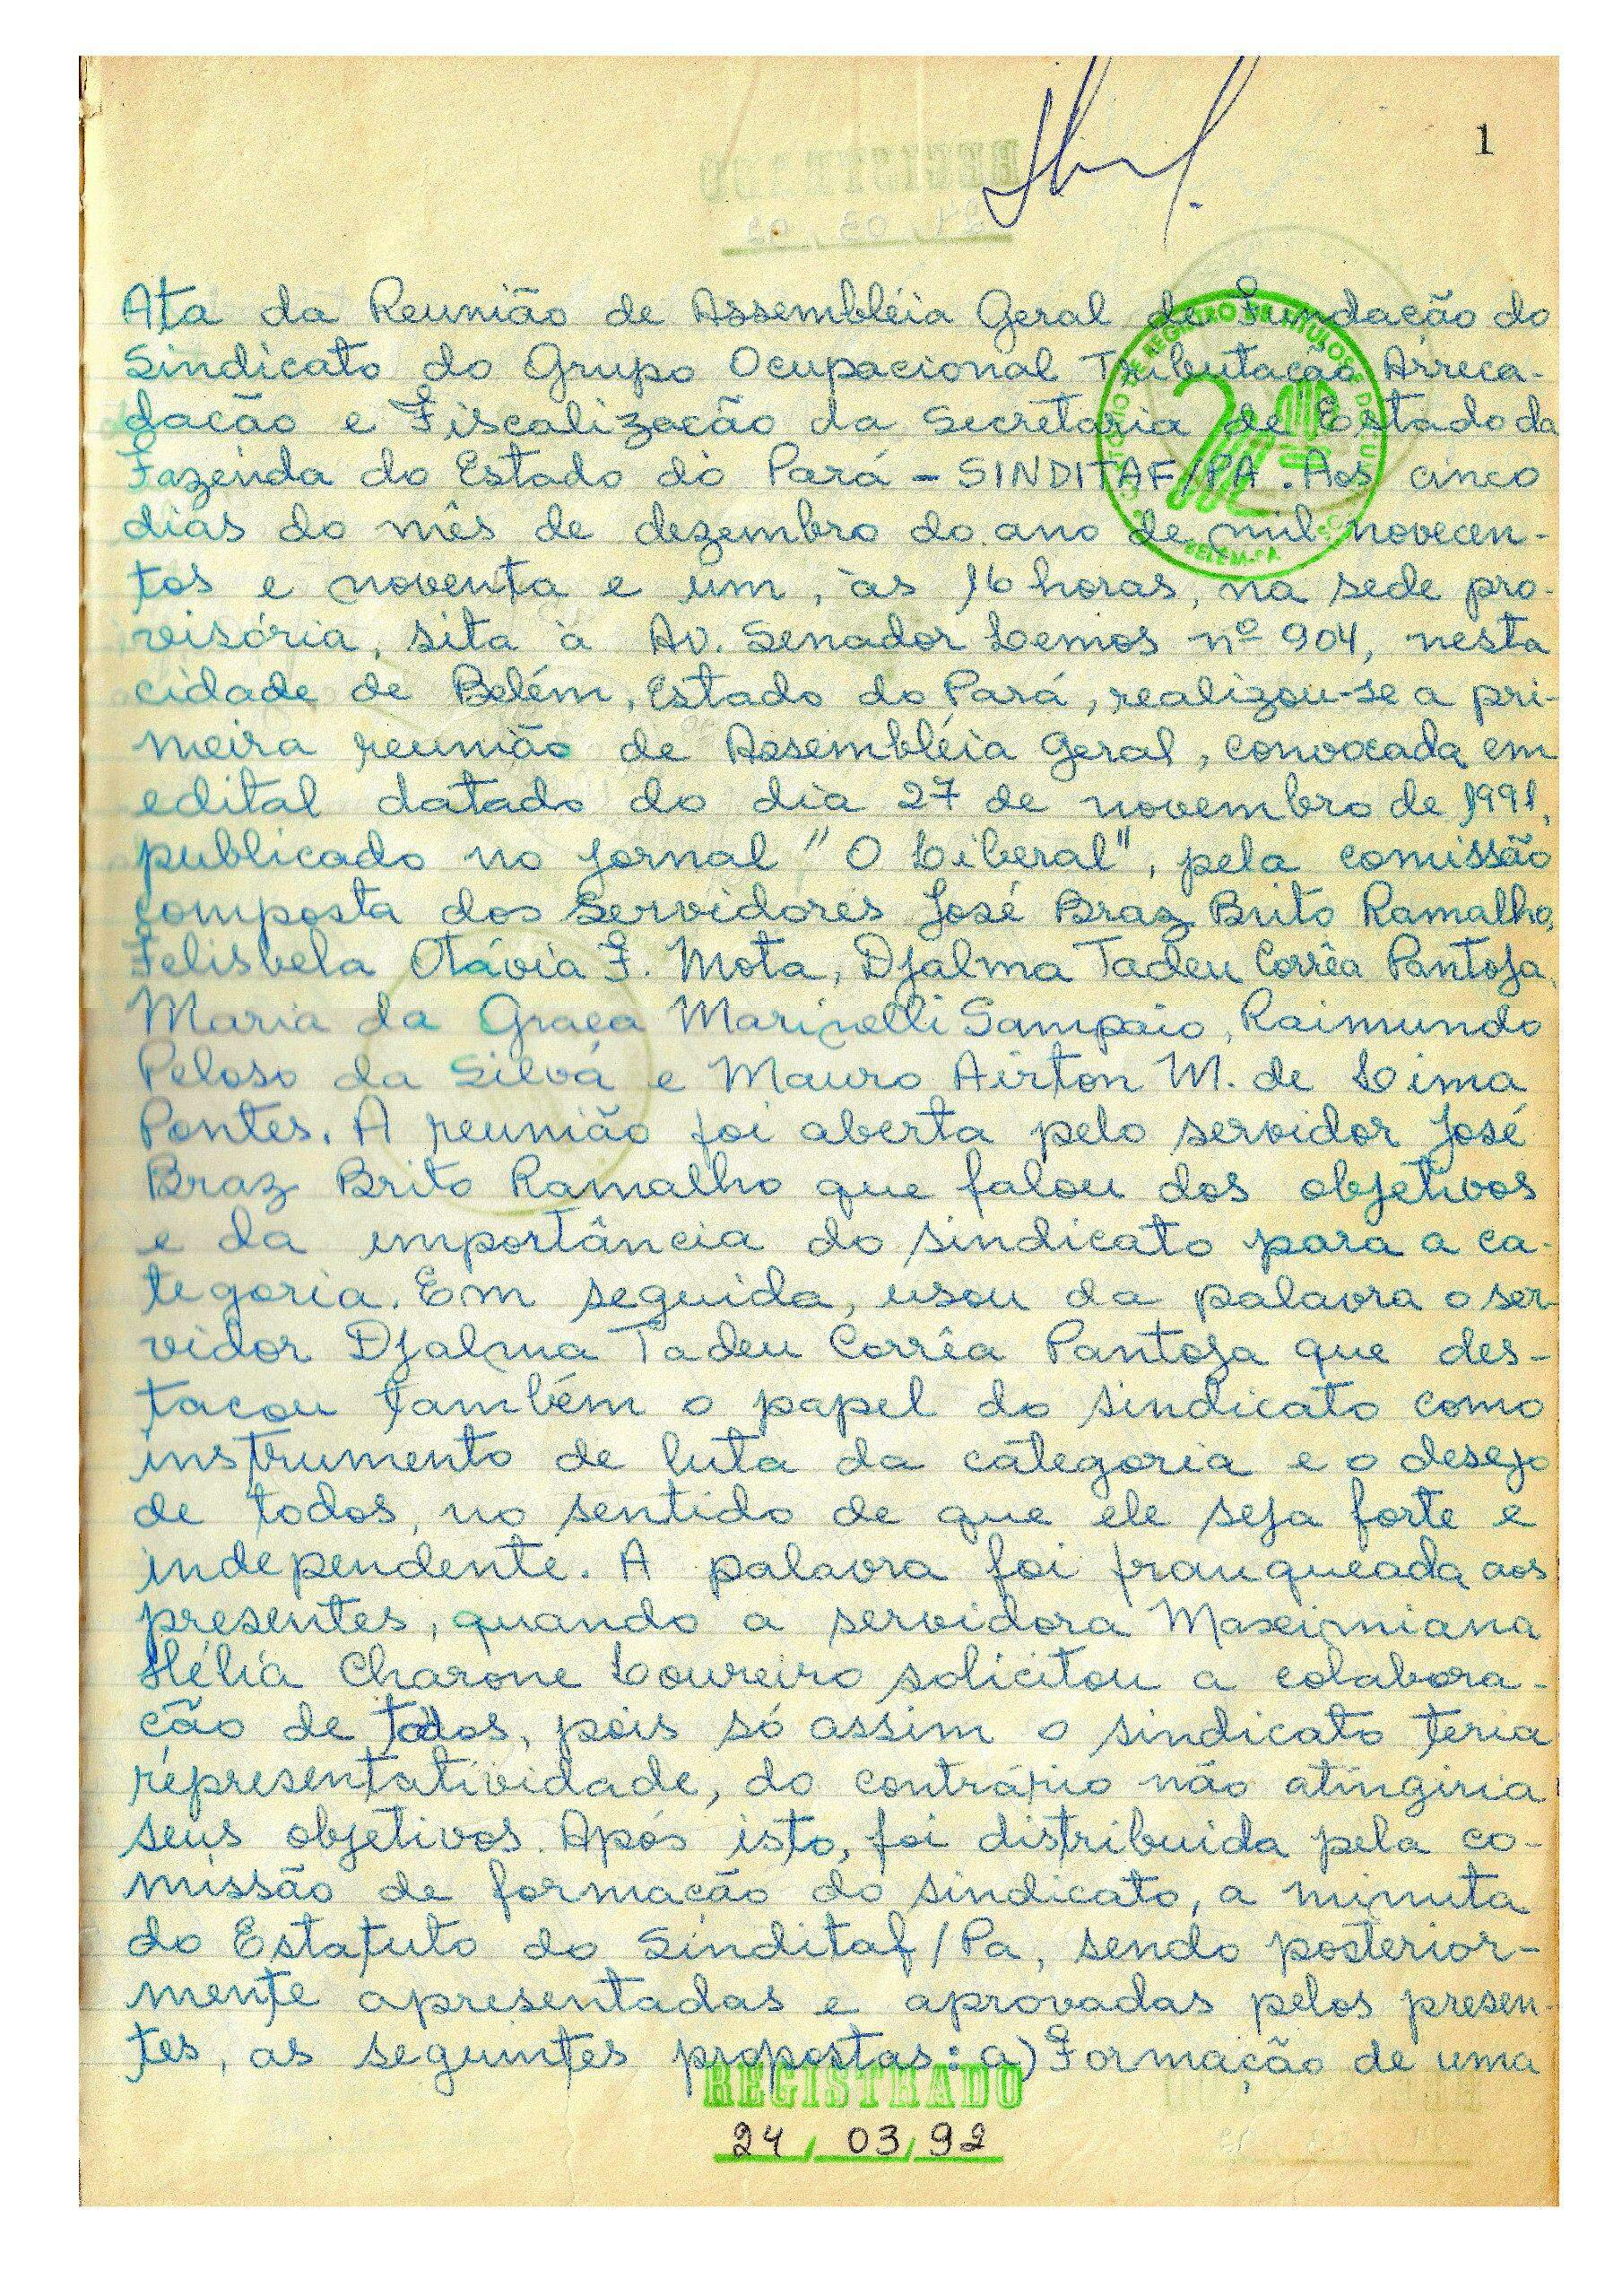 1
Ata da Reunião de Assembléia Geral de Fundação do
Sindicato do Grupo Ocupacional Tributação Arreca-
dação e Fiscalização da Secretaria de Estado da
Fazenda do Estado do Pará - SINDITAF/PA. Aos cinco
dias do mês de dezembro do ano de mil novecen-
tos e noventa e um, às 16 horas, na sede pro-
visória, sita à Av. Senador Lemos nº 904, nesta
cidade de Belém, Estado do Pará, realizou-se a pri-
meira reunião de Assembléia Geral, convocada em
edital datado do dia 27 de novembro de 1991,
publicado no jornal "O Liberal", pela comissão
composta dos Servidores José Braz Brito Ramalho,
Felisbela Otávia F. Mota, Djalma Tadeu Corrêa Pantoja,
Maria da Graça Marinelli Sampaio, Raimundo
Peloso da Silva e Mauro Airton M. de Lima
Pontes. A reunião foi aberta pelo servidor José
Braz Brito Ramalho que falou dos objetivos
e da importância do sindicato para a ca-
tegoria. Em seguida, usou da palavra o ser-
vidor Djalma Tadeu Corrêa Pantoja que des-
tacou também o papel do sindicato como
instrumento de luta da categoria e o desejo
de todos, no sentido de que ele seja forte e
independente. A palavra foi franqueada aos
presentes, quando a servidora Maximiana
Hélia Charone Loureiro solicitou a colabora-
ção de todos, pois só assim o sindicato teria
representatividade, do contrário não atingiria
seus objetivos. Após isto, foi distribuida pela co-
missão de formação do sindicato, a minuta
do Estatuto do Sinditaf/Pa, sendo posterior-
mente apresentadas e aprovadas pelos presen-
tes, as seguintes propostas: a) Formação de uma
REGISTRADO
24/03/92